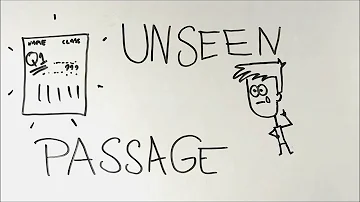 NAME CLASS
Q1
???
UNSEEN
PASSAGE